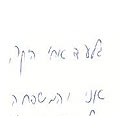 גלעד אחי היקר,
אני והמשפחה